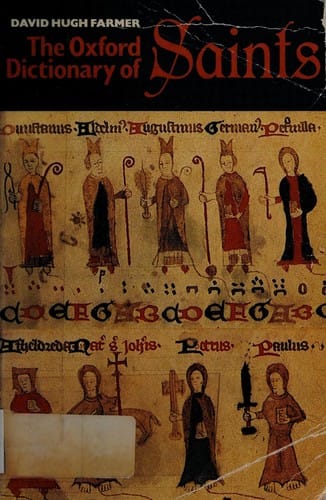 DAVID HUGH FARMER
The Oxford
Dictionary of
Saints
Dunstanus Aldelm' Augustinus German' Pet'nilla
d e f g a b c d e f g a b c
Etheldreda Nat' s' Joh'is Petrus Paulus